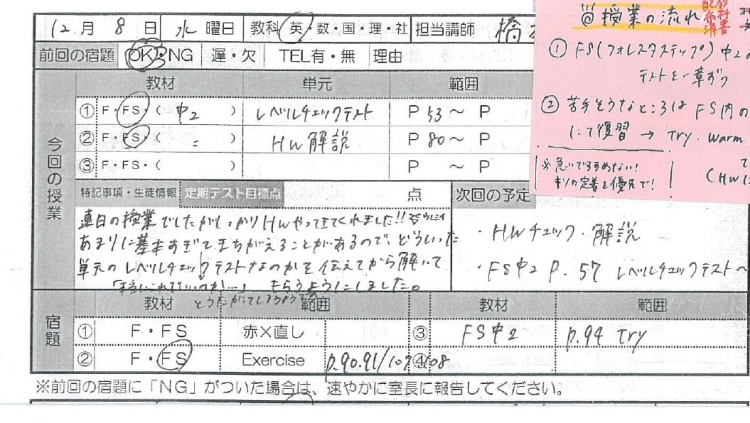 12月 8日 水曜日 教科 英・数・国・理・社 担当講師 橋
前回の宿題 OK・NG 遅・欠 TEL有・無 理由
今回の授業
教材 単元 範囲
① F・FS・( 中2 ) レベルチェックテスト P 53～ P
② F・FS・( 〃 ) HW 解説 P 80～ P
③ F・FS・( ) P ～ P
特記事項・生徒情報 定期テスト目標点 点 次回の予定
連日の授業でしたがしっかりHWやってきてくれました!!
あまりに基本すぎてまちがえることがあるので、どういった
単元のレベルチェックテストなのかを伝えてから解いて
もらうようにしました。
・HWチェック・解説
・FS中2 P.57 レベルチェックテスト～
宿題
教材 範囲 教材 範囲
① F・FS 赤✕直し ③ FS中2 p.94 Try
② F・FS Exercise p.90.91/107 ④ 108
※前回の宿題に「NG」がついた場合は、速やかに室長に報告してください。
@授業の流れ
① FS(フォレスタステップ) 中2の
テストを一章ずつ
② 苦手そうなところは FS内の
にて復習 → Try. Warm
※急いですすめない!
キソの定着を優先で!
(HWに